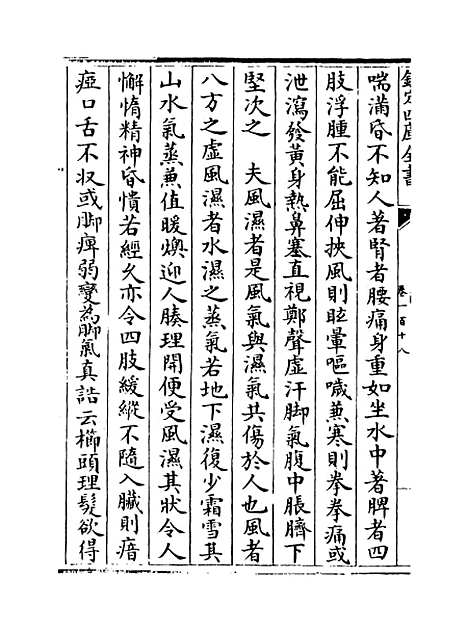 欽定四庫全書
卷一百十八
喘滿昏不知人著腎者腰痛身重如坐水中著脾者四
肢浮腫不能屈伸挾風則眩暈嘔噦兼寒則拳拳痛或
泄瀉發黃身熱鼻塞直視鄭聲虛汗脚氣腹中脹臍下
堅次之　夫風濕者是風氣與濕氣共傷於人也風者
八方之虛風濕者水濕之蒸氣若地下濕復少霜雪其
山水氣蒸兼值暖燠迎人腠理開便受風濕其狀令人
懈惰精神昏憒若經久亦令四肢緩縱不隨入臟則瘖
瘂口舌不収或脚痺弱變為脚氣真誥云櫛頭理髮欲得